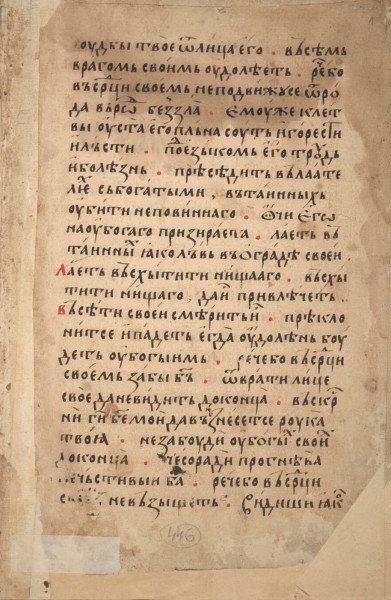 оудьбы твое ѿ лица его . въсѣмь
врагомь своимь оудолѣеть . рⷱ҇е бо
въ срⷣци своемь не подвижу се ѿ ро
да въ рѡⷣ без зла . Ємоу же клет
вы оуста его пльна соуть и горести
и льсти . поⷣ езыкомь его трꙋдь
и болѣзнь . присѣдить въ лаате
лїе съ богатыми , въ таинныхь
оубити неповиннаго . Ѻчи егѡ
на оубогаго призираета . лаеть въ
таинныⷯ ꙗко львь въ ѡградѣ своеи .
Лаеть въсхытити нищааго . въсхы
тити нищаго , даⷤ привлѣчеть ..
въ сѣти своеи смѣрить и . прѣкло
нит се и падеть егда ѹдолѣнь боу
деть оубогыимь . рече бо въ срⷣци
своемь забы бь҃ . ѿврати лице
свое да не видить до конца . въскрⷭ
ни ги҃ бе҃ мои да възнесет се роука
твоꙗ . не забоуди оубогыⷯ своиⷯ
до конца . чесо ради прогнѣва
нечьстивыи ба҃ . рече бо въ срⷣци
своемь не възыщеть . Видиши ꙗкоⷤ
146